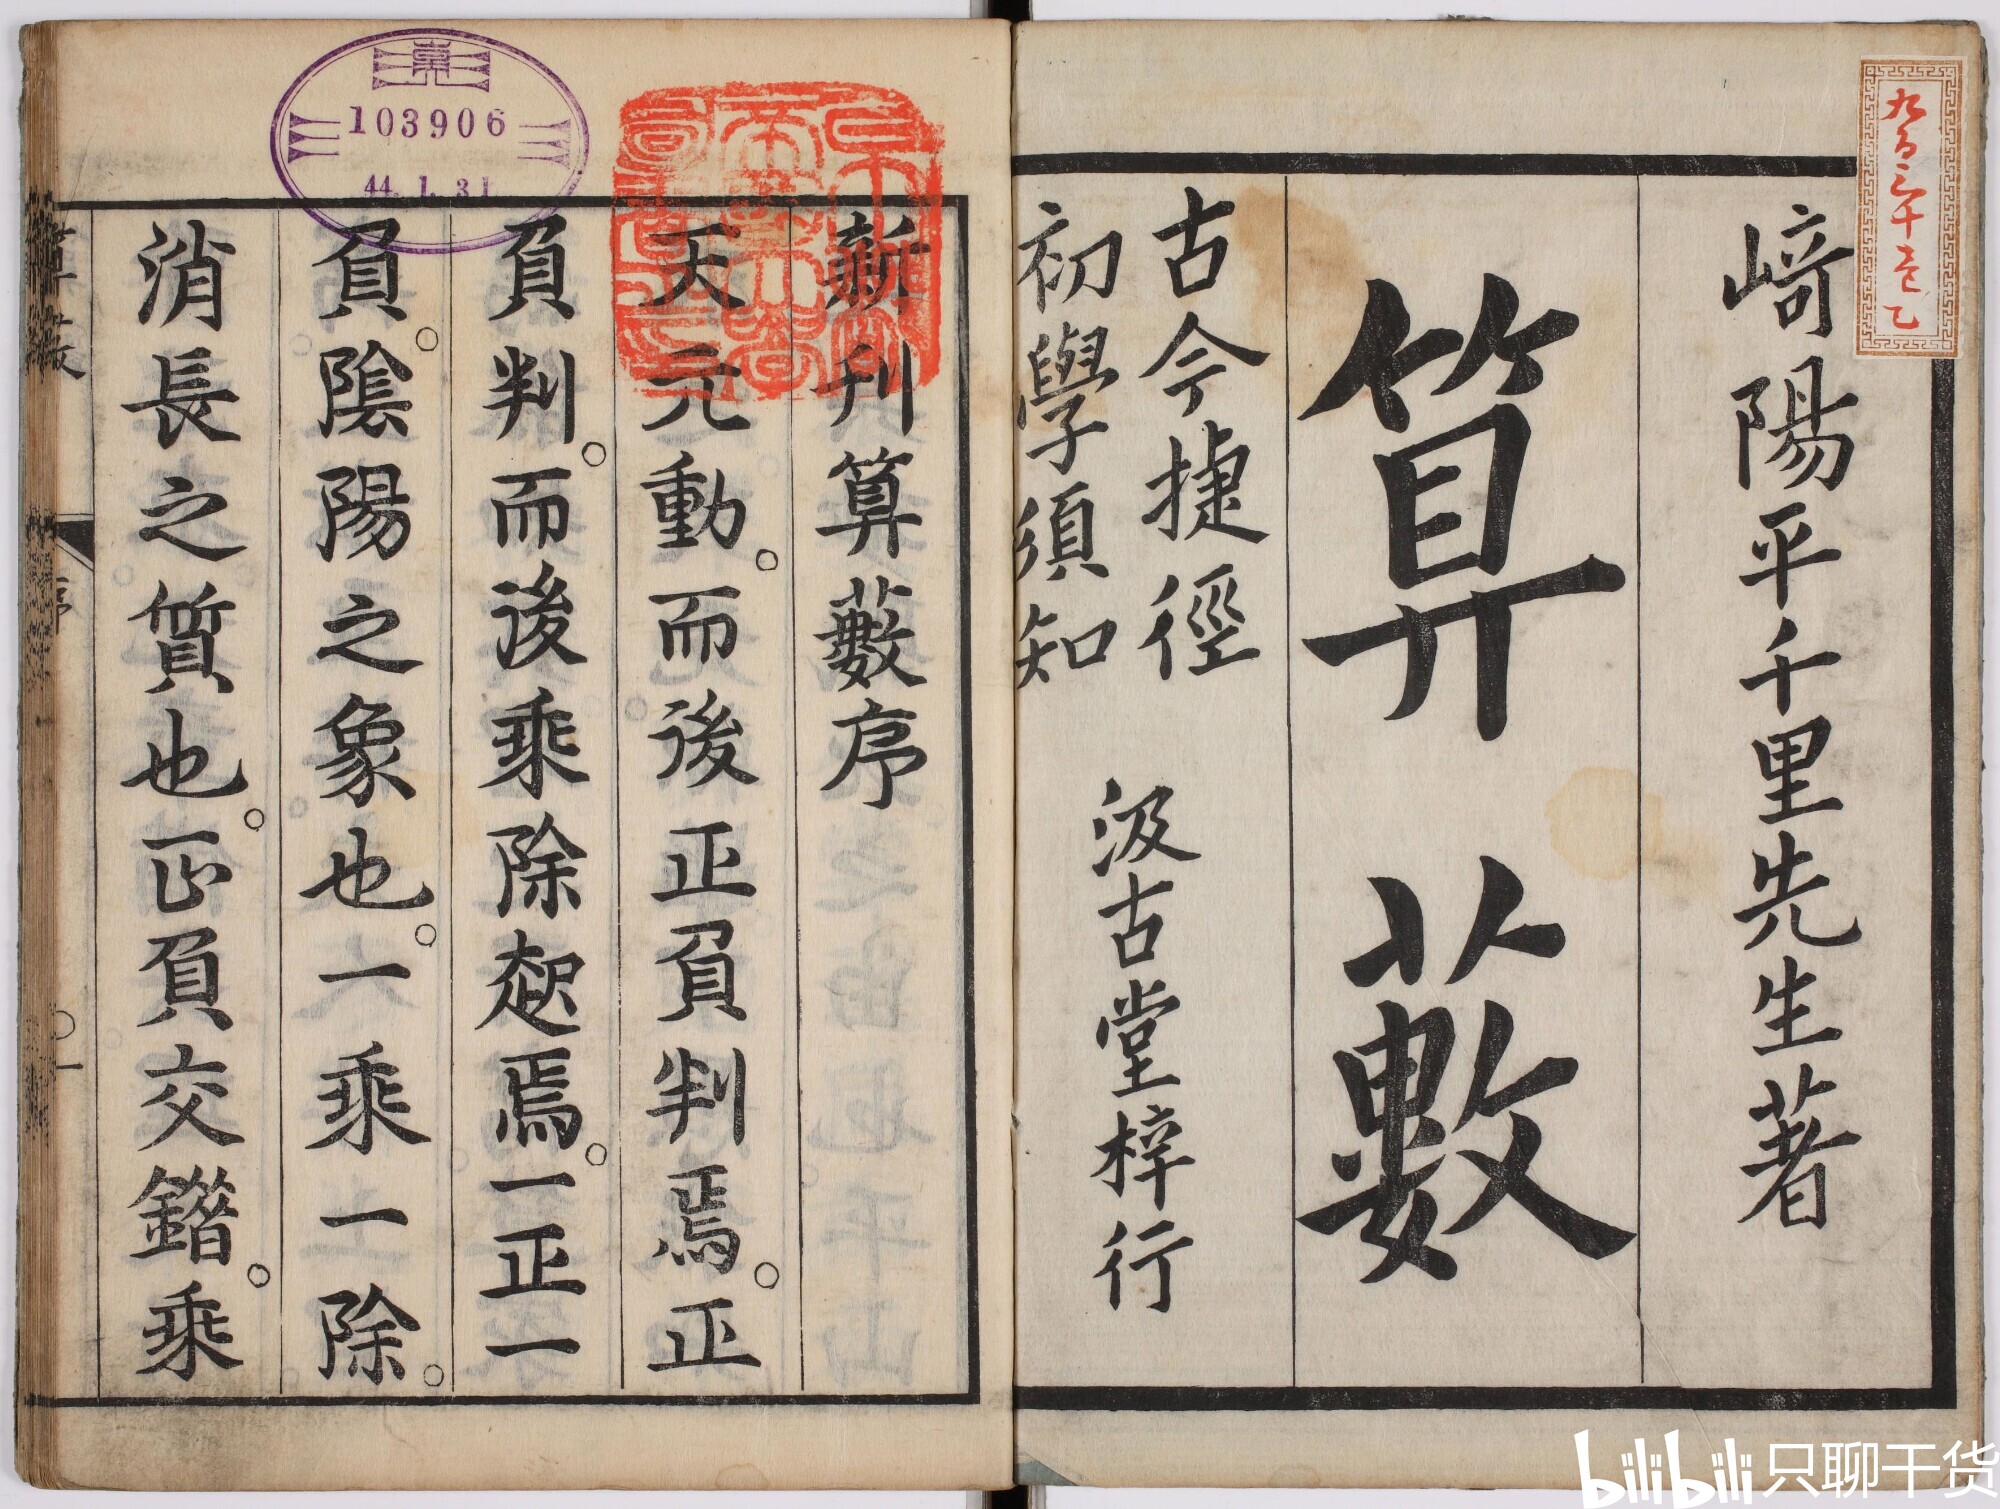 九百三十壱乙
﨑陽平千里先生著
算藪
古今捷徑
初學須知
汲古堂梓行
新刋算藪序
天元動。而後正負判焉。正
負判。而後乗除起焉。一正一
負。陰陽之象也。一乗一除。
消長之質也。正負交錯。乗
算藪
序
○一
103906
44.1.31
bilibili 只聊干货